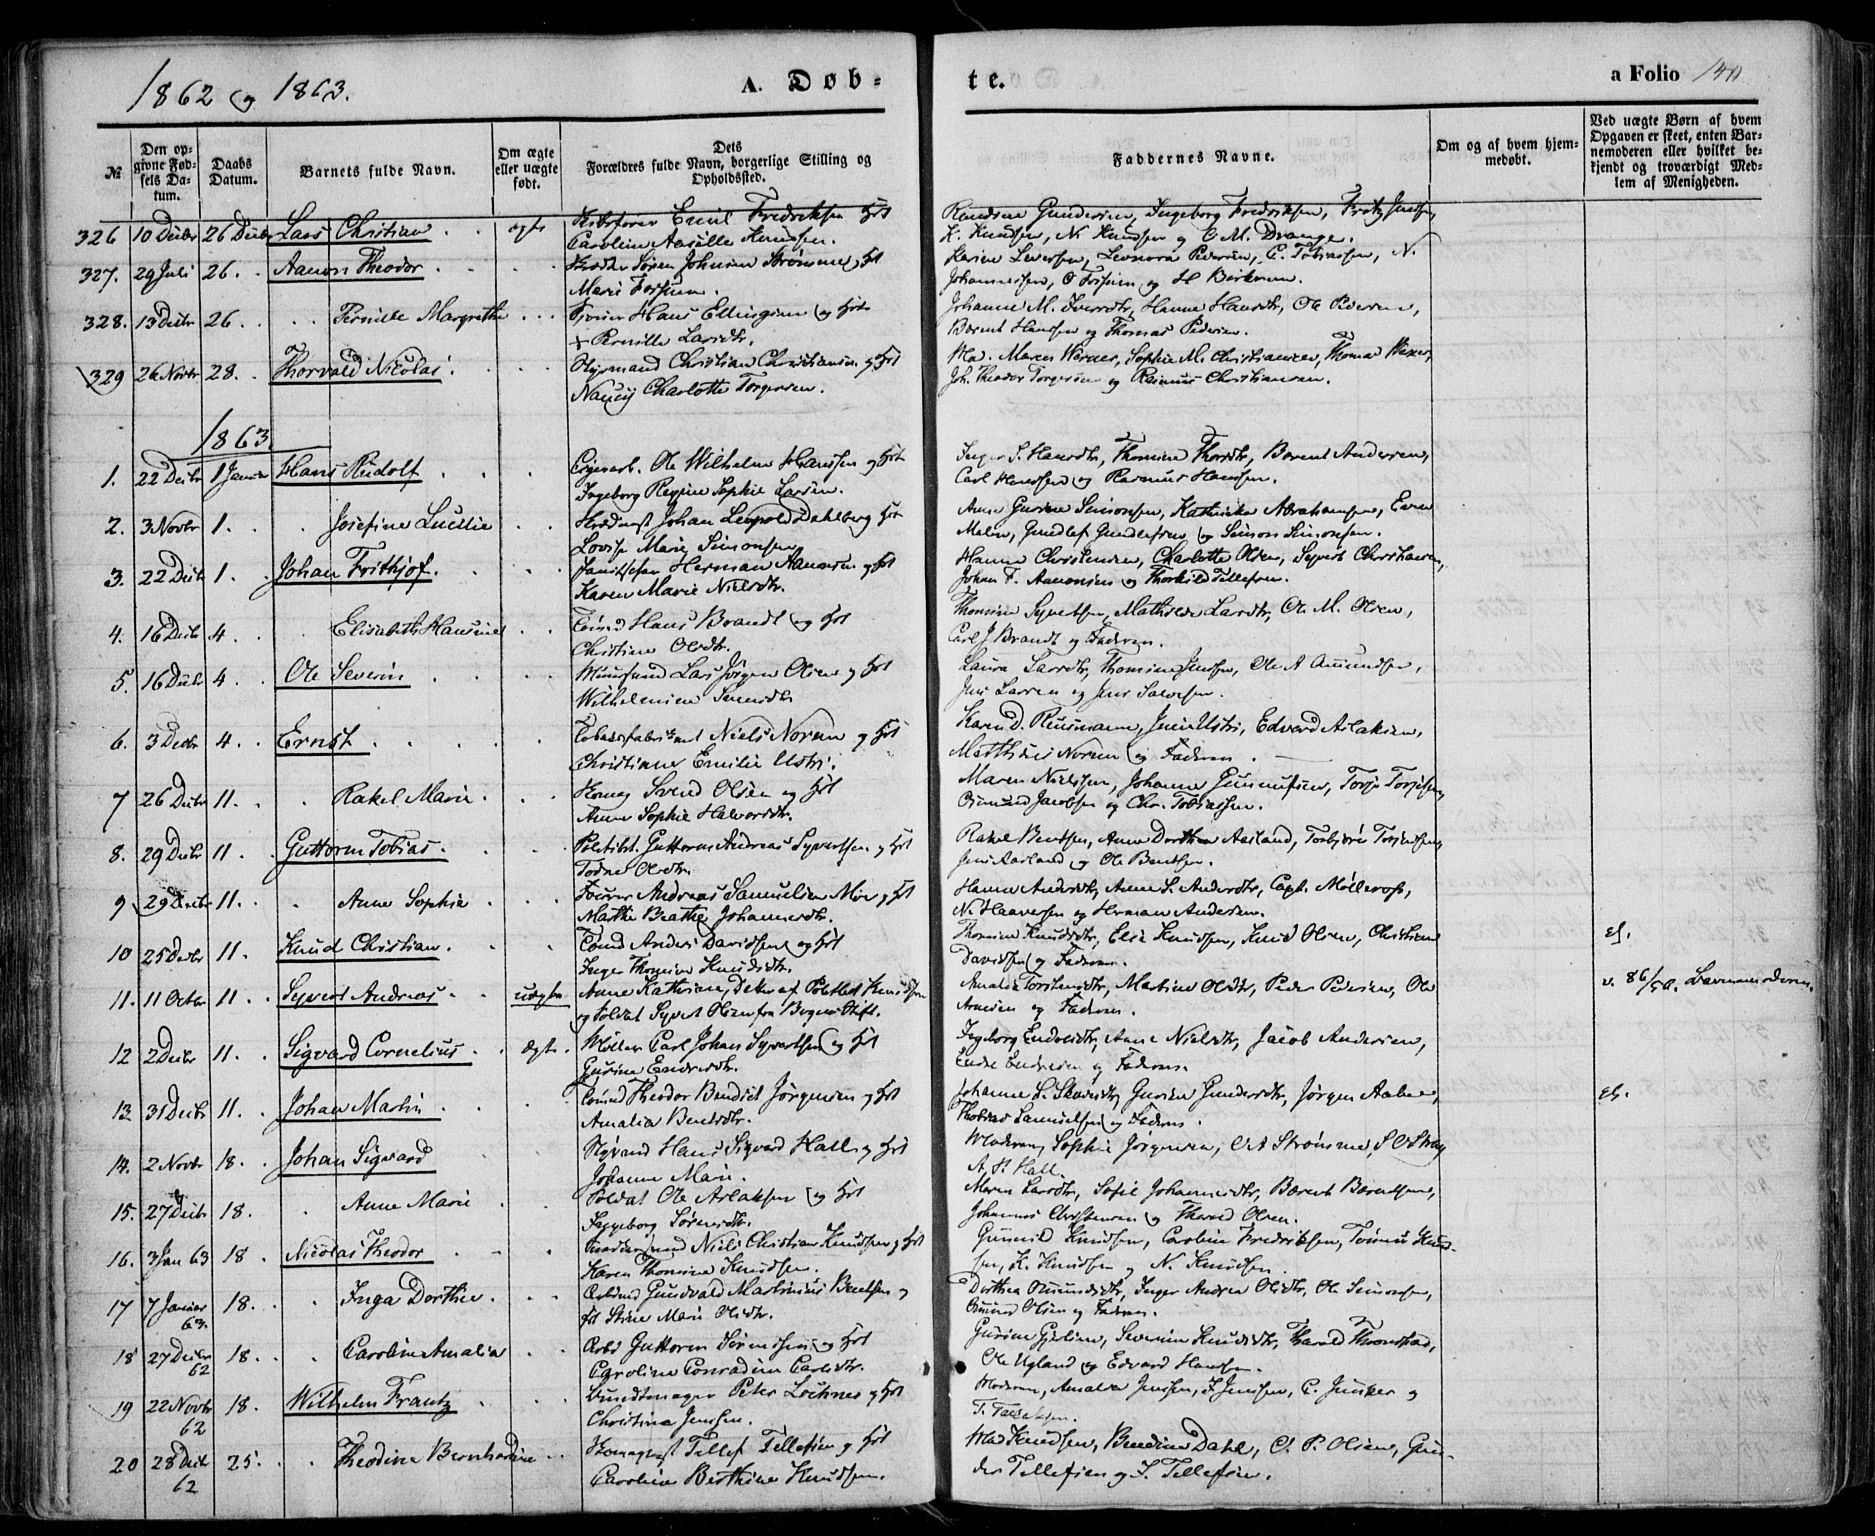 1862 og 1863.
A. Døb-
te.
a Folio 140
№
Den opgivne Fødsels Datum.
Daabs Datum.
Barnets fulde Navn.
Om ægte eller uægte født.
Dets Forældres fulde Navn, borgerlige Stilling og Opholdssted.
Faddernes Navne.
Om og af hvem hjemmedøbt.
Ved uægte Børn af hvem Opgaven er skeet, enten Barnemoderen eller hvilket bekjendt og troværdigt Medlem af Menigheden.
326 10 Decbr 26 Decbr Lars Christian ægte Emil Fredriksen og Hst Gundersen, Ingeborg Fredriksen, Fritz Jensen,
Knudsen. K. Knudsen, N. Knudsen og C. M. Drange.
327. 29 Juli 26. Aanon Theodor Søren Johnsen Strømme og Hst Karine Leversen, Leonora Pedersen, C. Tobiassen, N.
Marie Johannessen, O og H Birkrem.
328. 13 Decbr 26. Pernille Margrethe Hans Ellingsen og Hst Johanne M. Iversdtr, Hanne Hansdtr, Ole Pedersen,
Pernille Larsdtr. Berent Hansen og Thomas Pedersen.
329 26 Novbr 28. Thorvald Nicolai. Styrmand Christian Christiansen og Hst Mad. Maren Werner, Sophie M. Christiansen, Thomas
Nancy Charlotte Torgersen. Joh. Theodor Torgersen og Rasmus Christiansen.
1863.
1. 22 Decbr 1 Januar Hans Rudolf Ole Wilhelm Hanssen og Hst Inger S. Hansdtr, Thomine Thorsdtr, Berent Andersen,
Ingeborg Regine Sophie Larsen. Carl Hanssen og Rasmus Hanssen.
2. 3 Novbr 1. Josefine Lucilie Johan Leopold Dahlberg og Hst Anne Gurine Simonsen, Kathrine Abrahamsen, Even
Lovise Marie Simonsen Gundlef Gundlefsen og Simon Simonsen.
3. 22 Decbr 1. Johan Frithjof. Herman Aanonsen og Hst Hanne Christensen, Charlotte Olsen, Syvert Christiansen,
Karen Marie Nielsdtr. Johan F. Aanonsen og Thorkild Tellefsen.
4. 16 Decbr 4. Elisabeth Hansine Tømd Hans Brandt og Hst Thomine Syvertsen, Mathilde Larsdtr, Ole M. Olsen,
Christine Olsdtr. Carl J Brandt og Faderen.
5. 16 Decbr 4. Ole Severin Lars Jørgen Olsen og Hst Laura Larsdtr, Thomine Jensen, Ole A Amundsen,
Wilhelmine Jens Larsen og Jens Salvesen.
6. 3 Decbr 4. Ernst Tobaksfabrikant Niels Norem og Hst Karen D. Reusmann, Ustvi, Edvard Aslaksen,
Christiane Emilie Ustvi. Matthias Norem og Faderen.
7 26 Decbr 11. Rakel Marie Svend Olsen og Hst Maren Nielssen, Johanne Gunnufsen, Torje Torjesen,
Anne Sophie Halvorsdtr. Osmund Jacobsen og Chr. Tobiassen.
8. 29 Decbr 11. Guttorm Tobias Politibt. Guttorm Andreas Syvertsen og Hst Rakel Bentsen, Anne Dorthea Aasland, Torbjørn
Todne Olsdtr. Jens Aasland og Ole Bentsen.
9 29 Decbr 11. Anne Sophie Andreas Samuelsen Moe og Hst Hanne Andersdtr, Anne S. Andersdtr, Capt. Møllerop,
Marthe Beathe Johannesdtr. N. Haaversen og Herman Andersen.
10 25 Decbr 11. Knud Christian Tømd Anders Davidsen og Hst Thomine Knudsdtr, Elise Knudsen, Knud Olsen, Christian
Inger Thomine Knudsdtr. Davidsen og Faderen. ef.
11. 11 Octbr 11. Syvert Andreas uægte Anne Kathrine, Datter af Politibt Knudsen Amalia Torstensdtr, Martine Olsdtr, Peder Pedersen, Ole v. 86/50. Barnemoderen.
og Soldat Syvert Olsen fra Bergens Stift. Arnesen og Faderen.
12 2 Decbr 11. Sigvard Cornelius ægte. Møller Carl Johan Syvertsen og Hst Ingeborg Endresdtr, Anne Nielsdtr, Jacob Andersen,
Gurine Endresdtr. Endre Endresen og Faderen.
13 31 Decbr 11. Johan Martin Tømd Theodor Bendict Jørgensen og Hst Johanne S. Gurine Gundersdtr, Jørgen ef.
Amalia Bentsdtr. Samuelsen og Faderen.
14. 2 Novbr 18. Johan Sigvard Hans Sigvard Hall og Hst Moderen, Sophie Jørgensen, O A Strømme, S O Stray
Johanne Marie. A. H. Hall
15. 27 Decbr 18. Anne Marie Soldat Ole Aslaksen og Hst Maren Larsdtr, Sofie Johannesdtr, Berent Berentsen,
Ingeborg Sørensdtr. Johannes Christensen og Tharald Olsen.
16. 3 Jan 63 18. Nicolai Theodor Niels Christian Knudsen og Hst Gunvild Knudsen, Caroline Fredriksen, Tønnes Knud-
Karen Thomine Knudsen. sen, K. Knudsen og N. Knudsen.
17 7 Januar 63. 18. Inga Dorthea Gundvald Martinius Bentsen og Dorthea Inger Andrea Olsdtr, Ole Simonsen,
Hst Stine Marie Olsdtr. Osmund Olsen og Faderen.
18 27 Decbr 62 18. Caroline Amalia Arbd Guttorm Sørensen og Hst Gurine Severine Knudsdtr, Tharald Thronstad,
Caroline Conradine Carlsdtr. Ole Ugland og Edvard Hansen.
19 22 Novbr 62 18. Wilhelm Frantz Bundtmager Peter Lochner og Hst Moderen, Amalia Jenssen, J Jenssen, C. Junker og
Christine Jenssen. T.
20 28 Decbr 62 25. Theodine Bernhardine Tellef Tellefsen og Hst Mad Knudsen, Bendine Dahl, C. P. Olsen, Gun-
Caroline Berthine Knudsen. der Tellefsen og T. Tellefsen.